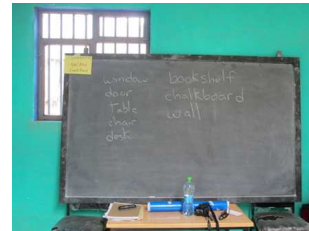 window
door
Table
chair
desk
bookshelf
chalkboard
wall